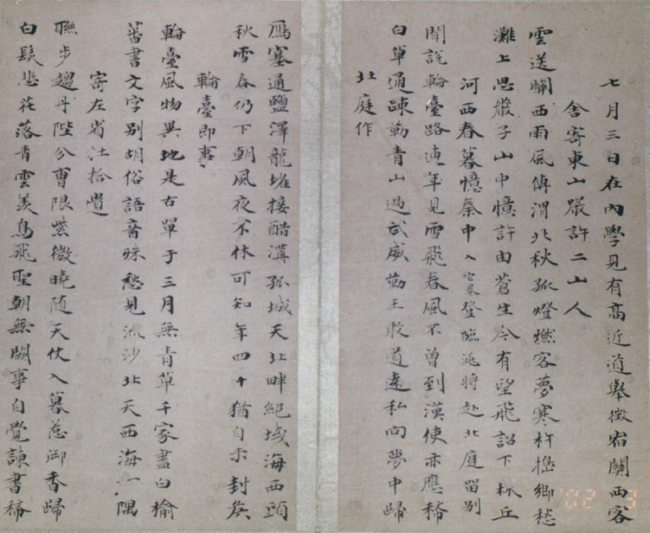 七月三日在內學見有高近道舉徵宿關西客
舍寄東山嚴許二山人
雲送關西雨風傳渭北秋孤燈燃客夢寒杵搗鄉愁
灘上思嚴子山中憶許由蒼生今有望飛詔下林丘
河西春暮憶秦中登臨洮將赴北庭留別
聞說輪臺路連年見雪飛春風不曾到漢使亦應稀
白草通疎勒青山過武威勤王敢道遠私向夢中歸
北庭作
鴈塞通鹽澤龍堆接醋溝孤城天北畔絕域海西頭
秋雪春仍下朝風夜不休可知年四十猶自未封侯
輪臺即事
輪臺風物異地是古單于三月無青草千家盡白榆
蕃書文字別胡俗語音殊愁見流沙北天西海一隅
寄左省杜拾遺
聯步趨丹陛分曹限紫微曉隨天仗入暮惹御香歸
白髮悲花落青雲羨鳥飛聖朝無闕事自覺諫書稀